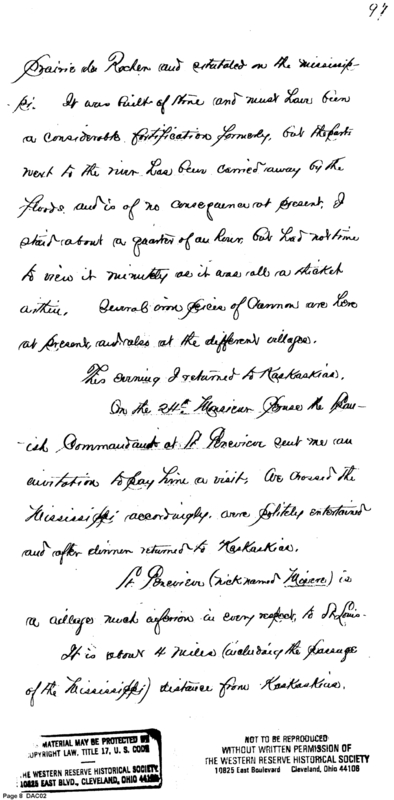 97
Prairie du Rocher and situated on the Mississip-
pi. It was built of stone and must have been
a considerable fortification formerly, but the part
next to the river has been carried away by the
floods and is of no consequence at present. I
staid about a quarter of an hour, but had not time
to view it minutely as it was all a thicket
within. Several iron pieces of Cannon are here
at present, and also at the different villages.
This evening I returned to Kaskaskias.
On the 24th Monsieur the Span-
ish Commandant at St Genevieve sent me an
invitation to pay him a visit, We crossed the
Mississippi accordingly, were politely entertained
and after dinner returned to Kaskaskias.
St Genevieve (nick named Misere) is
a village much inferior in every respect, to St Louis.
It is about 4 miles (including the passage
of the Mississippi) distance from Kaskaskias.
MATERIAL MAY BE PROTECTED BY
COPYRIGHT LAW, TITLE 17, U. S. CODE
THE WESTERN RESERVE HISTORICAL SOCIETY
10825 EAST BLVD., CLEVELAND, OHIO 44106
NOT TO BE REPRODUCED
WITHOUT WRITTEN PERMISSION OF
THE WESTERN RESERVE HISTORICAL SOCIETY
10825 East Boulevard Cleveland, Ohio 44106
Page 8 DAC02